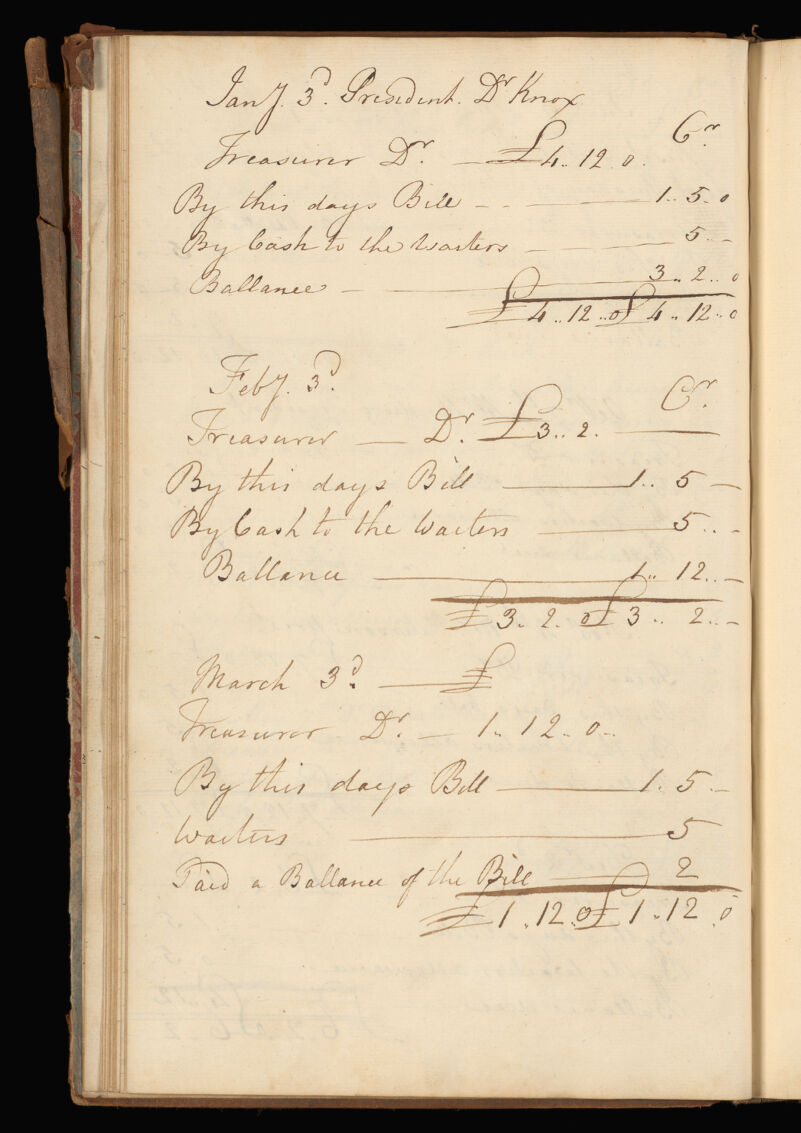 Jany. 3d. President. Dr Knox
Cr.
Treasurer Dr. — £4.. 12. 0.
By this days Bill — 1.. 5. 0
By Cash to the Waiters — 5.. –
Ballance — 3.. 2.. 0
£4.. 12.. 0 £4.. 12.. 0
Feby. 3d.
Cr.
Treasurer — Dr. £3.. 2. —
By this days Bill — 1.. 5 –
By Cash to the Waiters — 5.. –
Ballance — 1.. 12.. –
£3. 2. 0 £3.. 2.. –
March 3d. — £
Treasurer Dr. — 1.. 12.. 0..
By this days Bill — 1. 5.. –
Waiters — 5
Paid a Ballance of the Bill — 2
£1.. 12. 0 £1.. 12. 0